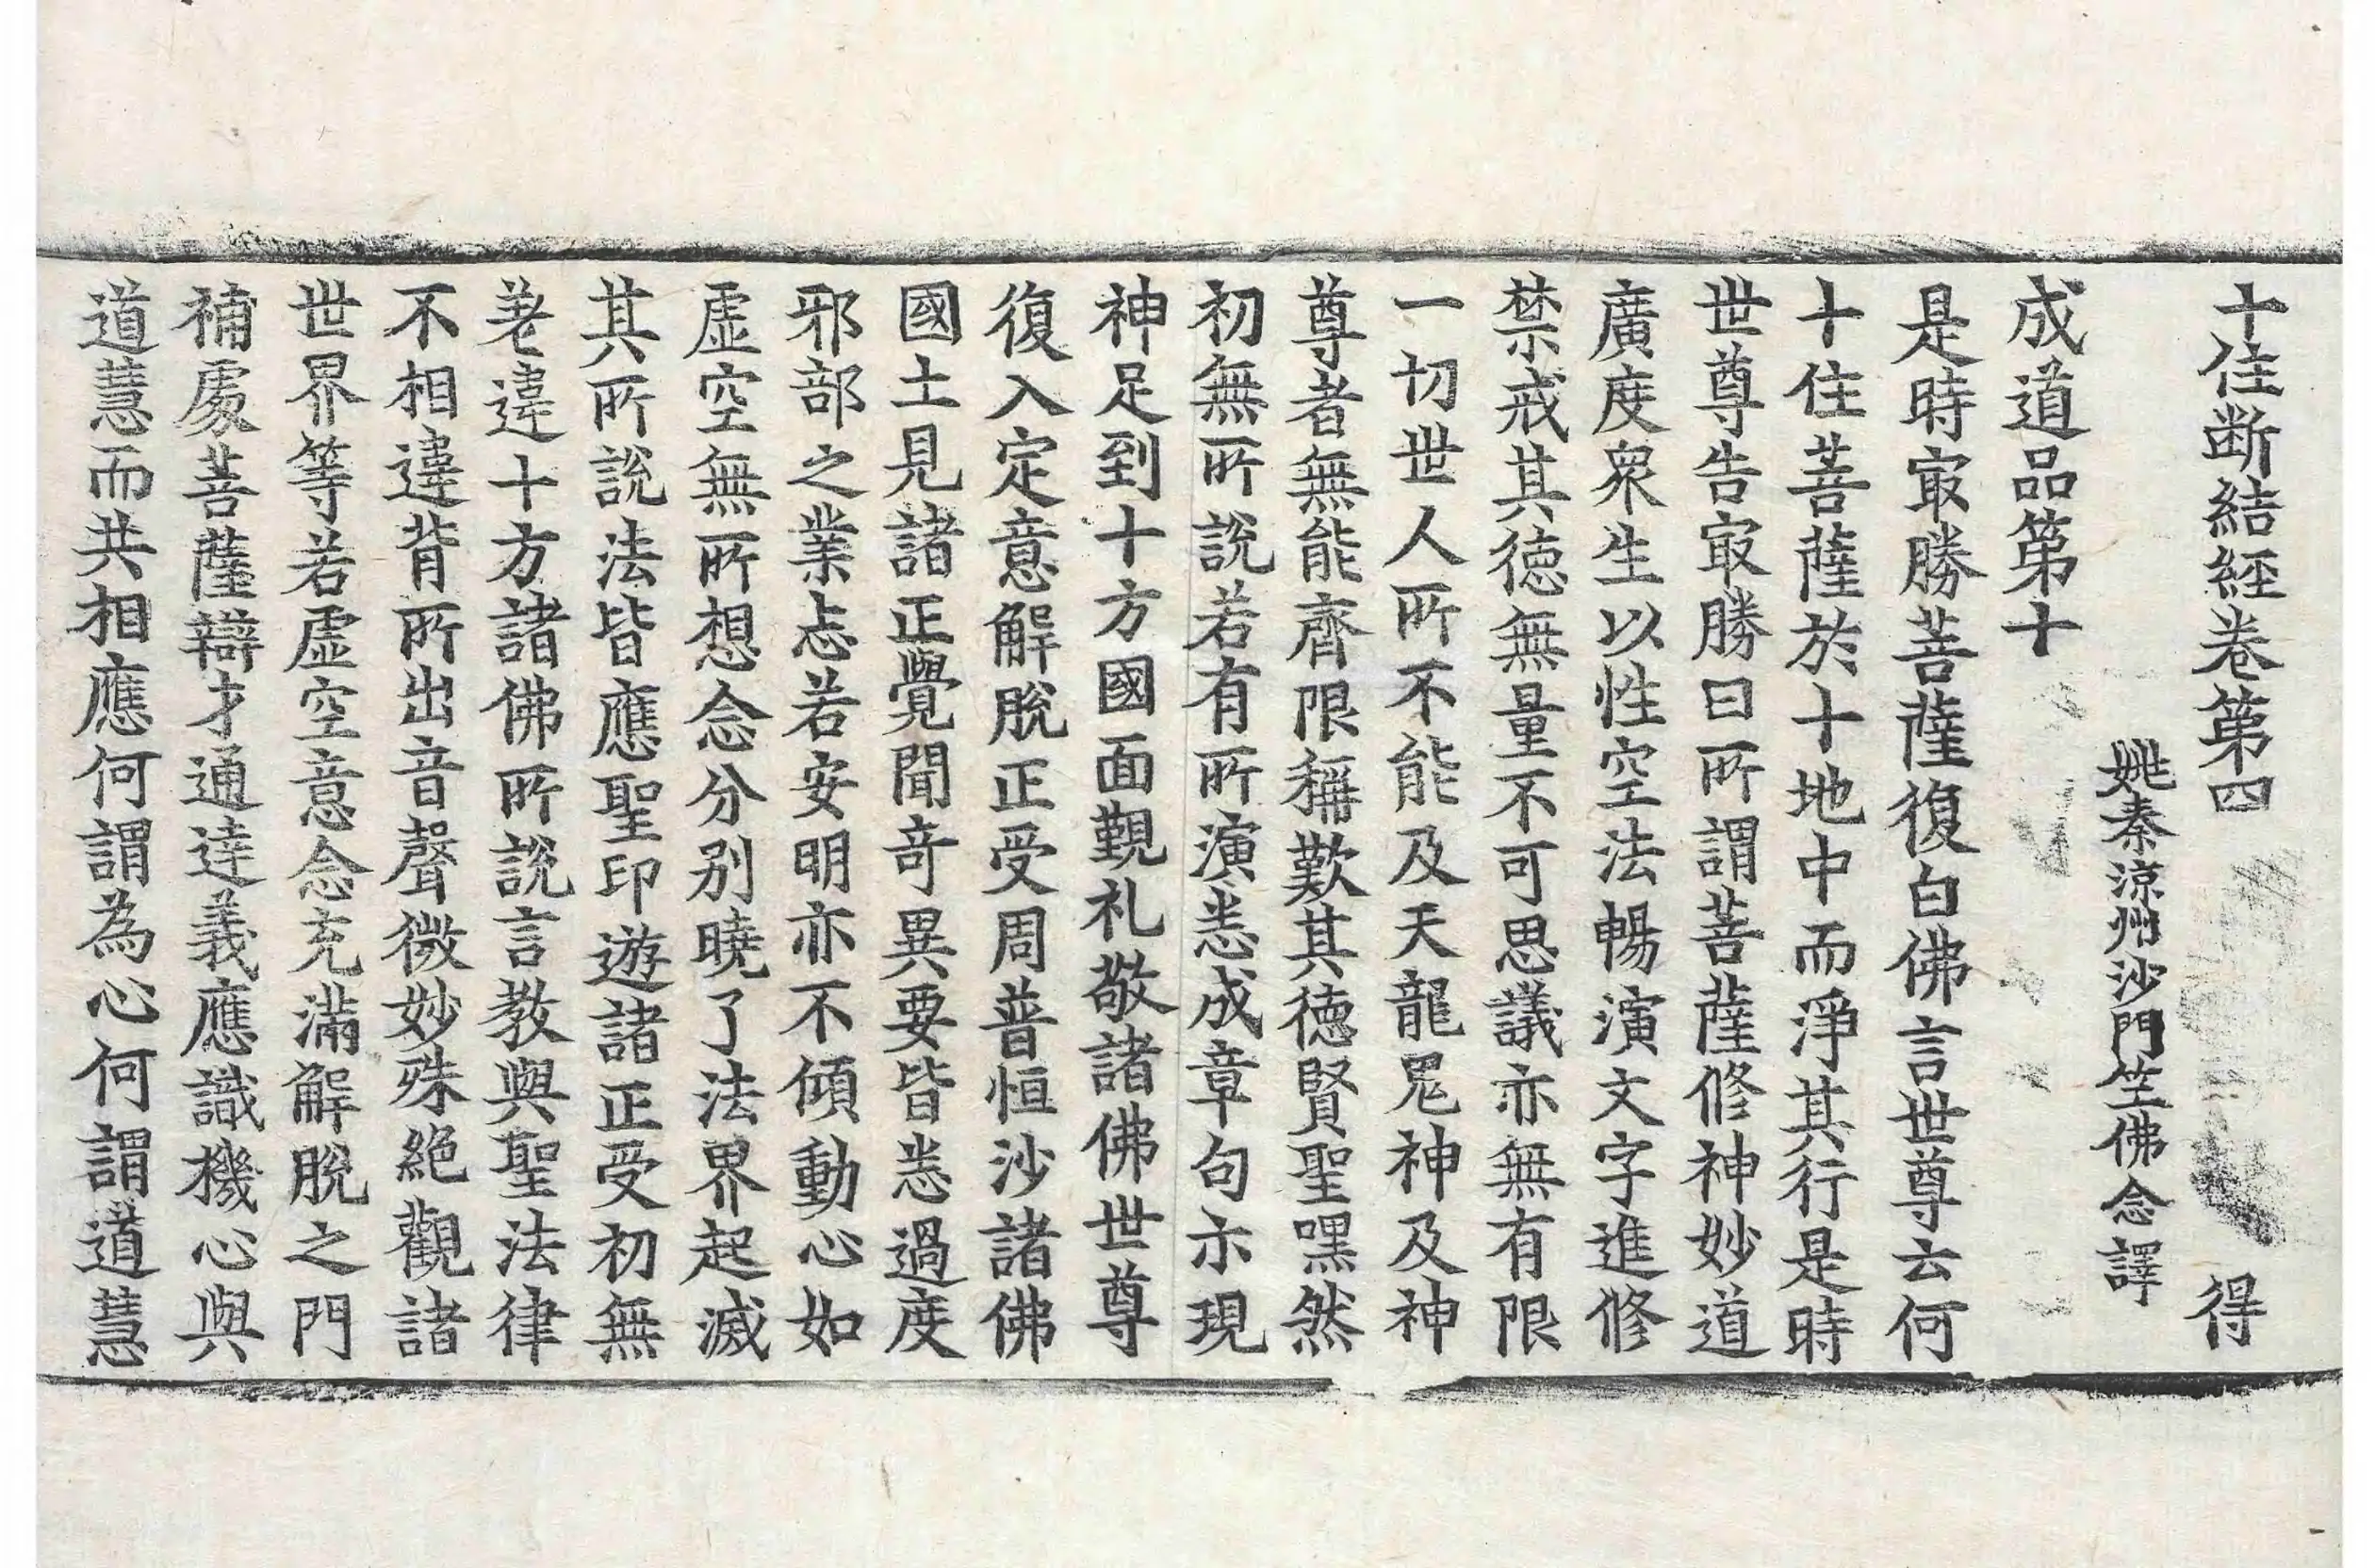 十住断結經卷第四 得
姚秦涼州沙門竺佛念譯
成道品第十
是時㝡勝菩薩復白佛言世尊云何
十住菩薩於十地中而淨其行是時
世尊告㝡勝曰所謂菩薩修神妙道
廣度衆生以性空法暢演文字進修
禁戒其徳無量不可思議亦無有限
一切世人所不能及天龍鬼神及神
尊者無能齊限稱歎其徳賢聖嘿然
初無所說若有所演悉成章句示現
神足到十方國面覲礼敬諸佛世尊
復入定意解脫正受周普恒沙諸佛
國土見諸正覺聞奇異要皆悉過度
邪部之業志若安明亦不傾動心如
虛空無所想念分别曉了法界起滅
其所說法皆應聖印遊諸正受初無
差違十方諸佛所說言教與聖法律
不相違背所出音聲微妙殊絶觀諸
世界等若虛空意念充滿解脫之門
補處菩薩辯才通達義應識機心與
道慧而共相應何謂為心何謂道慧